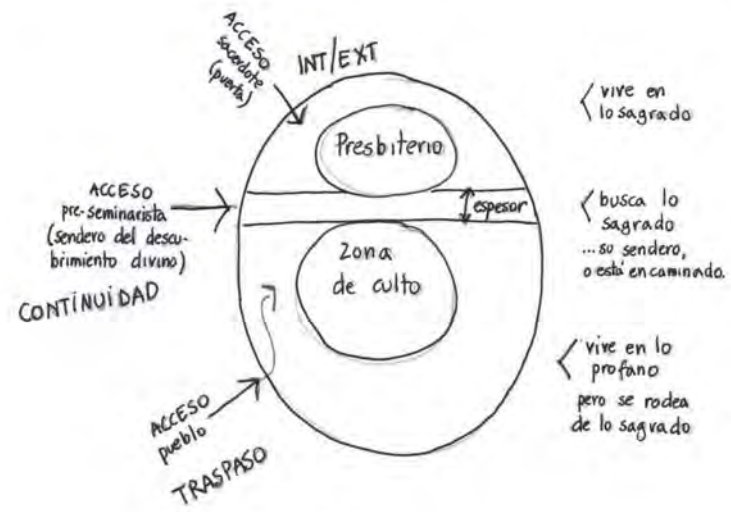 ACCESO
sacerdote
(puerta)
INT/EXT
Presbiterio
< vive en
lo sagrado
ACCESO
pre-seminarista
(sendero del descu-
brimiento divino)
CONTINUIDAD
espesor
< busca lo
sagrado
...su sendero,
o está encaminado.
Zona
de culto
< vive en lo
profano
pero se rodea
de lo sagrado
ACCESO
pueblo
TRASPASO